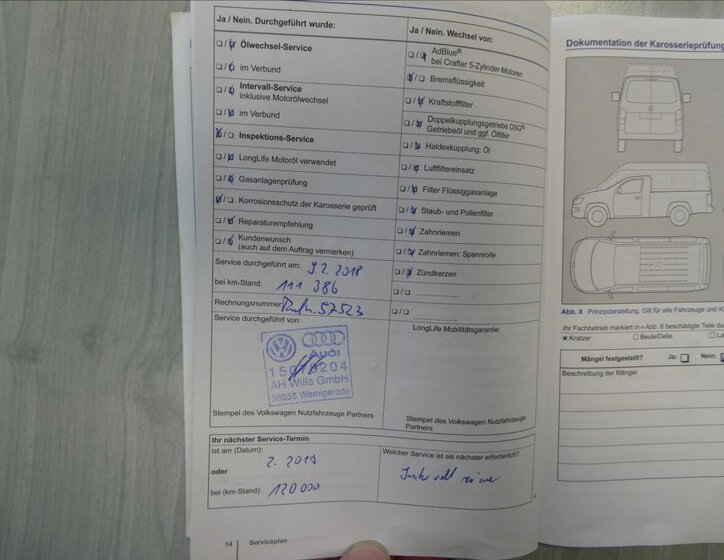 Ja / Nein. Durchgeführt wurde:
❏ / ❏ Ölwechsel-Service
❏ / ❏ im Verbund
❏ / ❏ Intervall-Service
inklusive Motorölwechsel
❏ / ❏ im Verbund
❏ / ❏ Inspektions-Service
❏ / ❏ LongLife Motoröl verwendet
❏ / ❏ Gasanlagenprüfung
❏ / ❏ Korrosionsschutz der Karosserie geprüft
❏ / ❏ Reparaturempfehlung
❏ / ❏ Kundenwunsch
(auch auf dem Auftrag vermerken)
Service durchgeführt am: 9.2.2018
bei km-Stand: 111 386
Rechnungsnummer: 57523
Service durchgeführt von:
Audi
AH Wille GmbH
38855 Wernigerode
Stempel des Volkswagen Nutzfahrzeuge Partners
Ja / Nein. Wechsel von:
❏ / ❏ AdBlue®
bei Crafter 5-Zylinder-Motoren
❏ / ❏ Bremsflüssigkeit
❏ / ❏ Kraftstofffilter
❏ / ❏ Doppelkupplungsgetriebe DSG®
Getriebeöl und ggf. Ölfilter
❏ / ❏ Haldexkupplung: Öl
❏ / ❏ Luftfiltereinsatz
❏ / ❏ Filter Flüssiggasanlage
❏ / ❏ Staub- und Pollenfilter
❏ / ❏ Zahnriemen
❏ / ❏ Zahnriemen: Spannrolle
❏ / ❏ Zündkerzen
❏ / ❏ ....................
❏ / ❏ ....................
LongLife Mobilitätsgarantie:
Stempel des Volkswagen Nutzfahrzeuge
Partners
Ihr nächster Service-Termin
ist am (Datum): 2. 2019
oder
bei (km-Stand): 120 000
Welcher Service ist als nächster erforderlich?
14 Serviceplan
Dokumentation der Karosserieprüfung
Abb. 8 Prinzipdarstellung. Gilt für alle Fahrzeuge und
Ihr Fachbetrieb markiert in ⇒Abb. 8 beschädigte Teile
✖ Kratzer ○ Beule/Delle
Mängel festgestellt? Ja: ❏ Nein:
Beschreibung der Mängel: